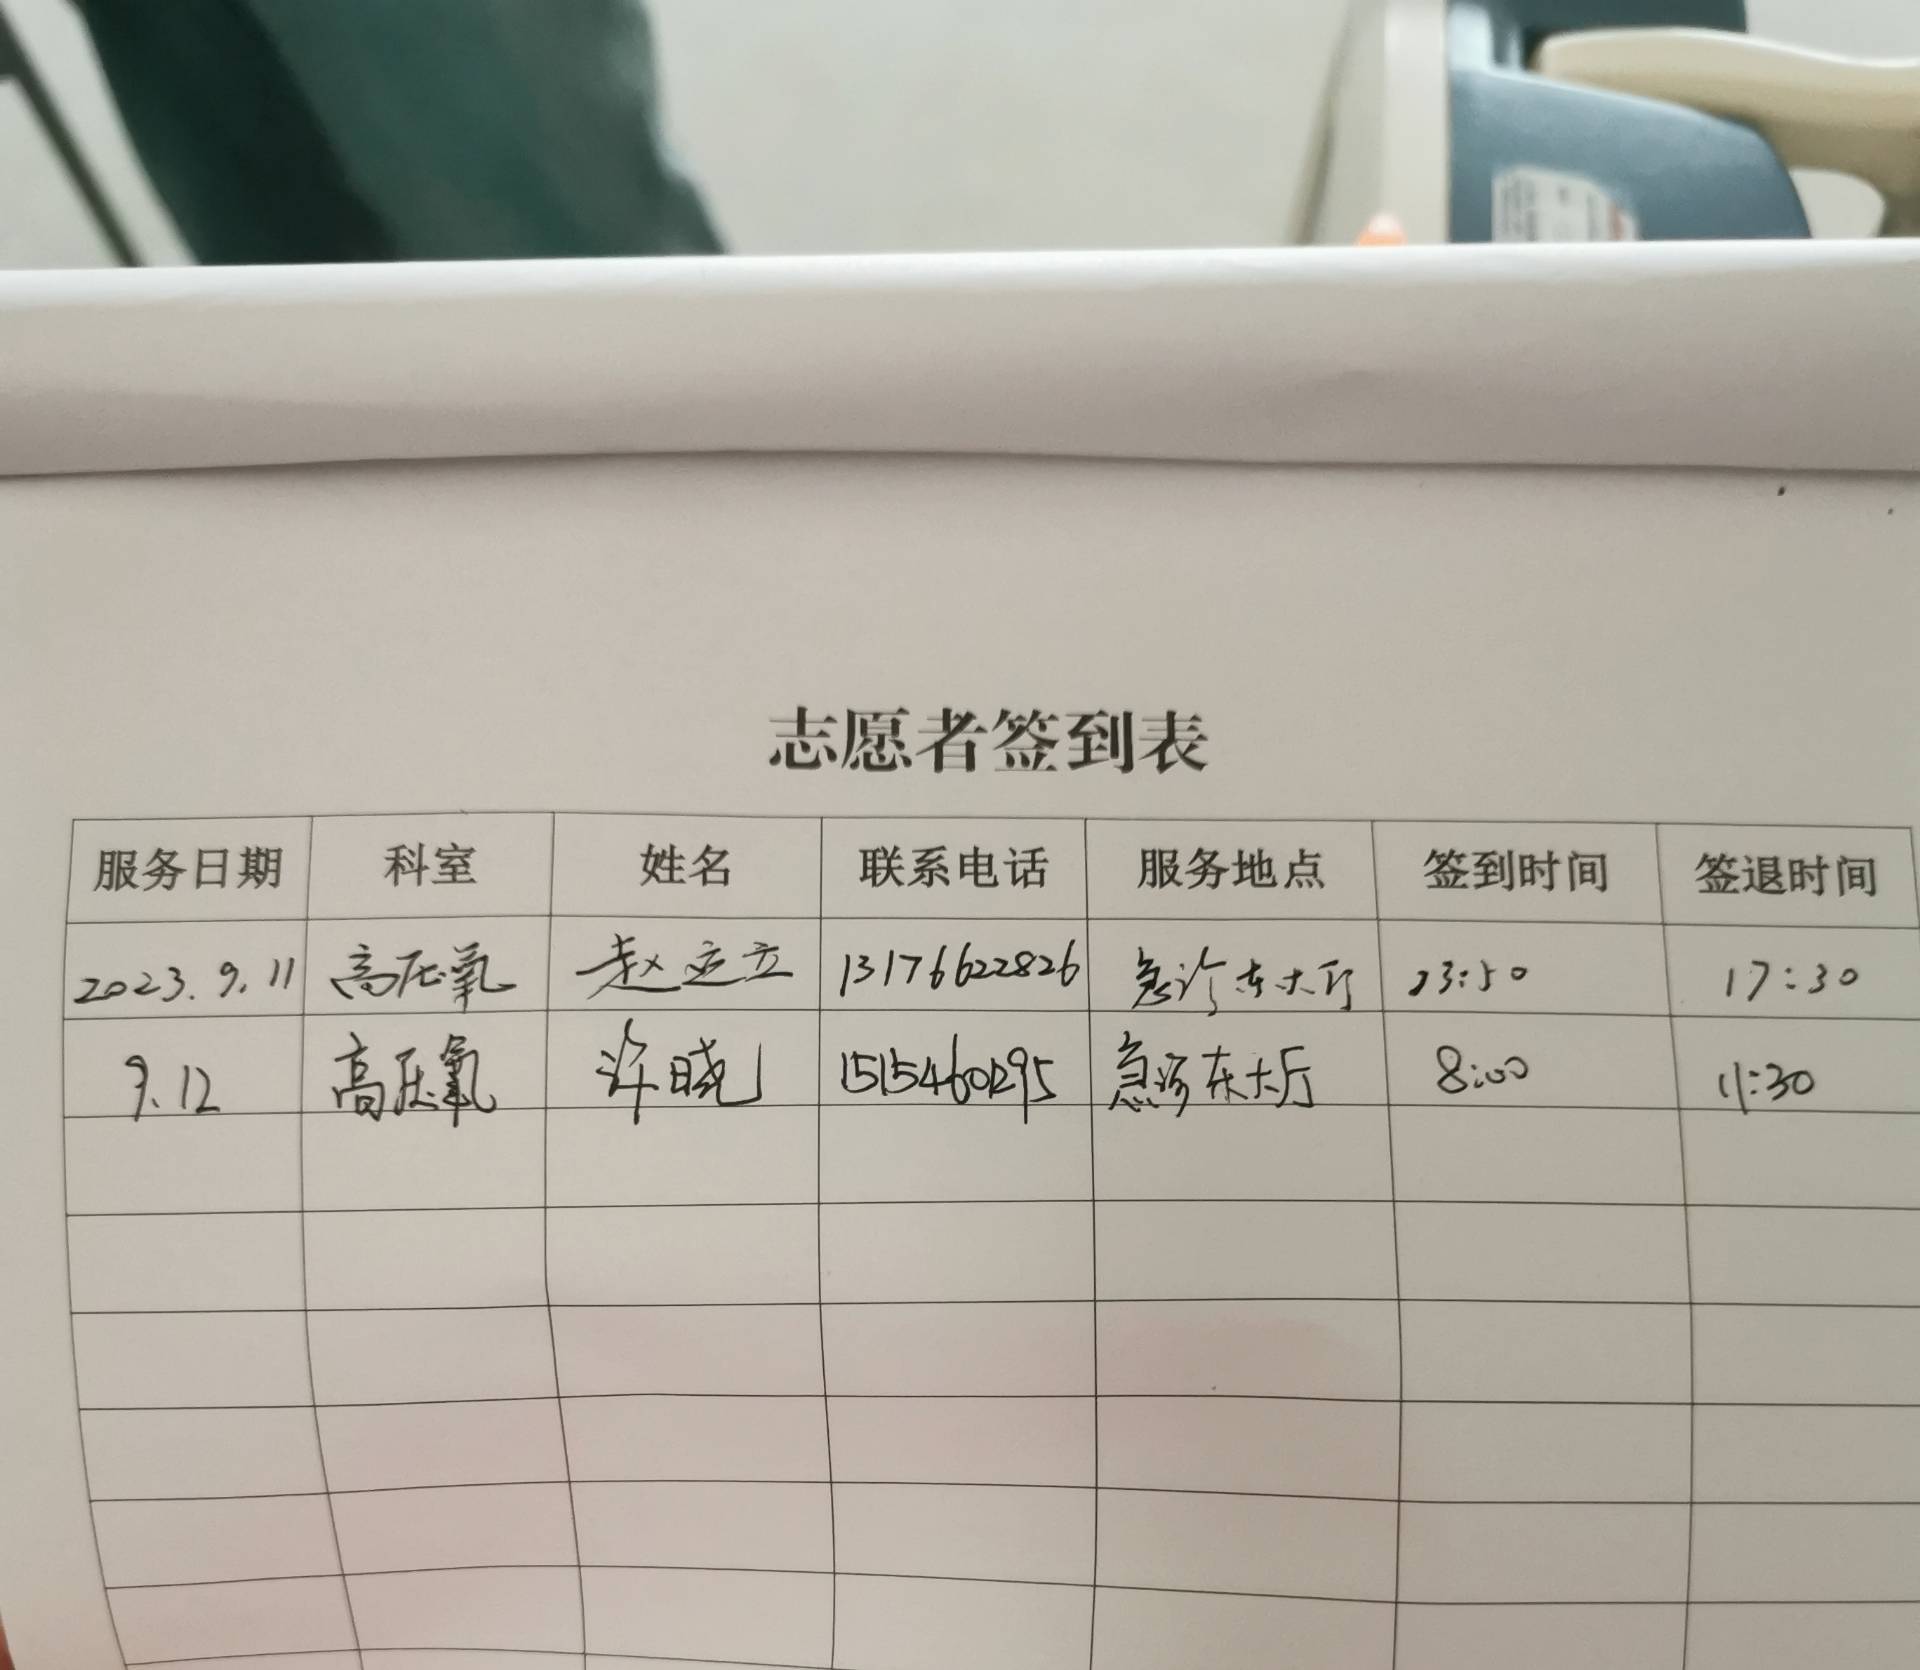 志愿者签到表
服务日期 科室 姓名 联系电话 服务地点 签到时间 签退时间
2023.9.11 高压氧 赵立 13176622826 急诊东大厅 13:50 17:30
9.12 高压氧 许晓 15154601295 急诊东大厅 8:00 11:30